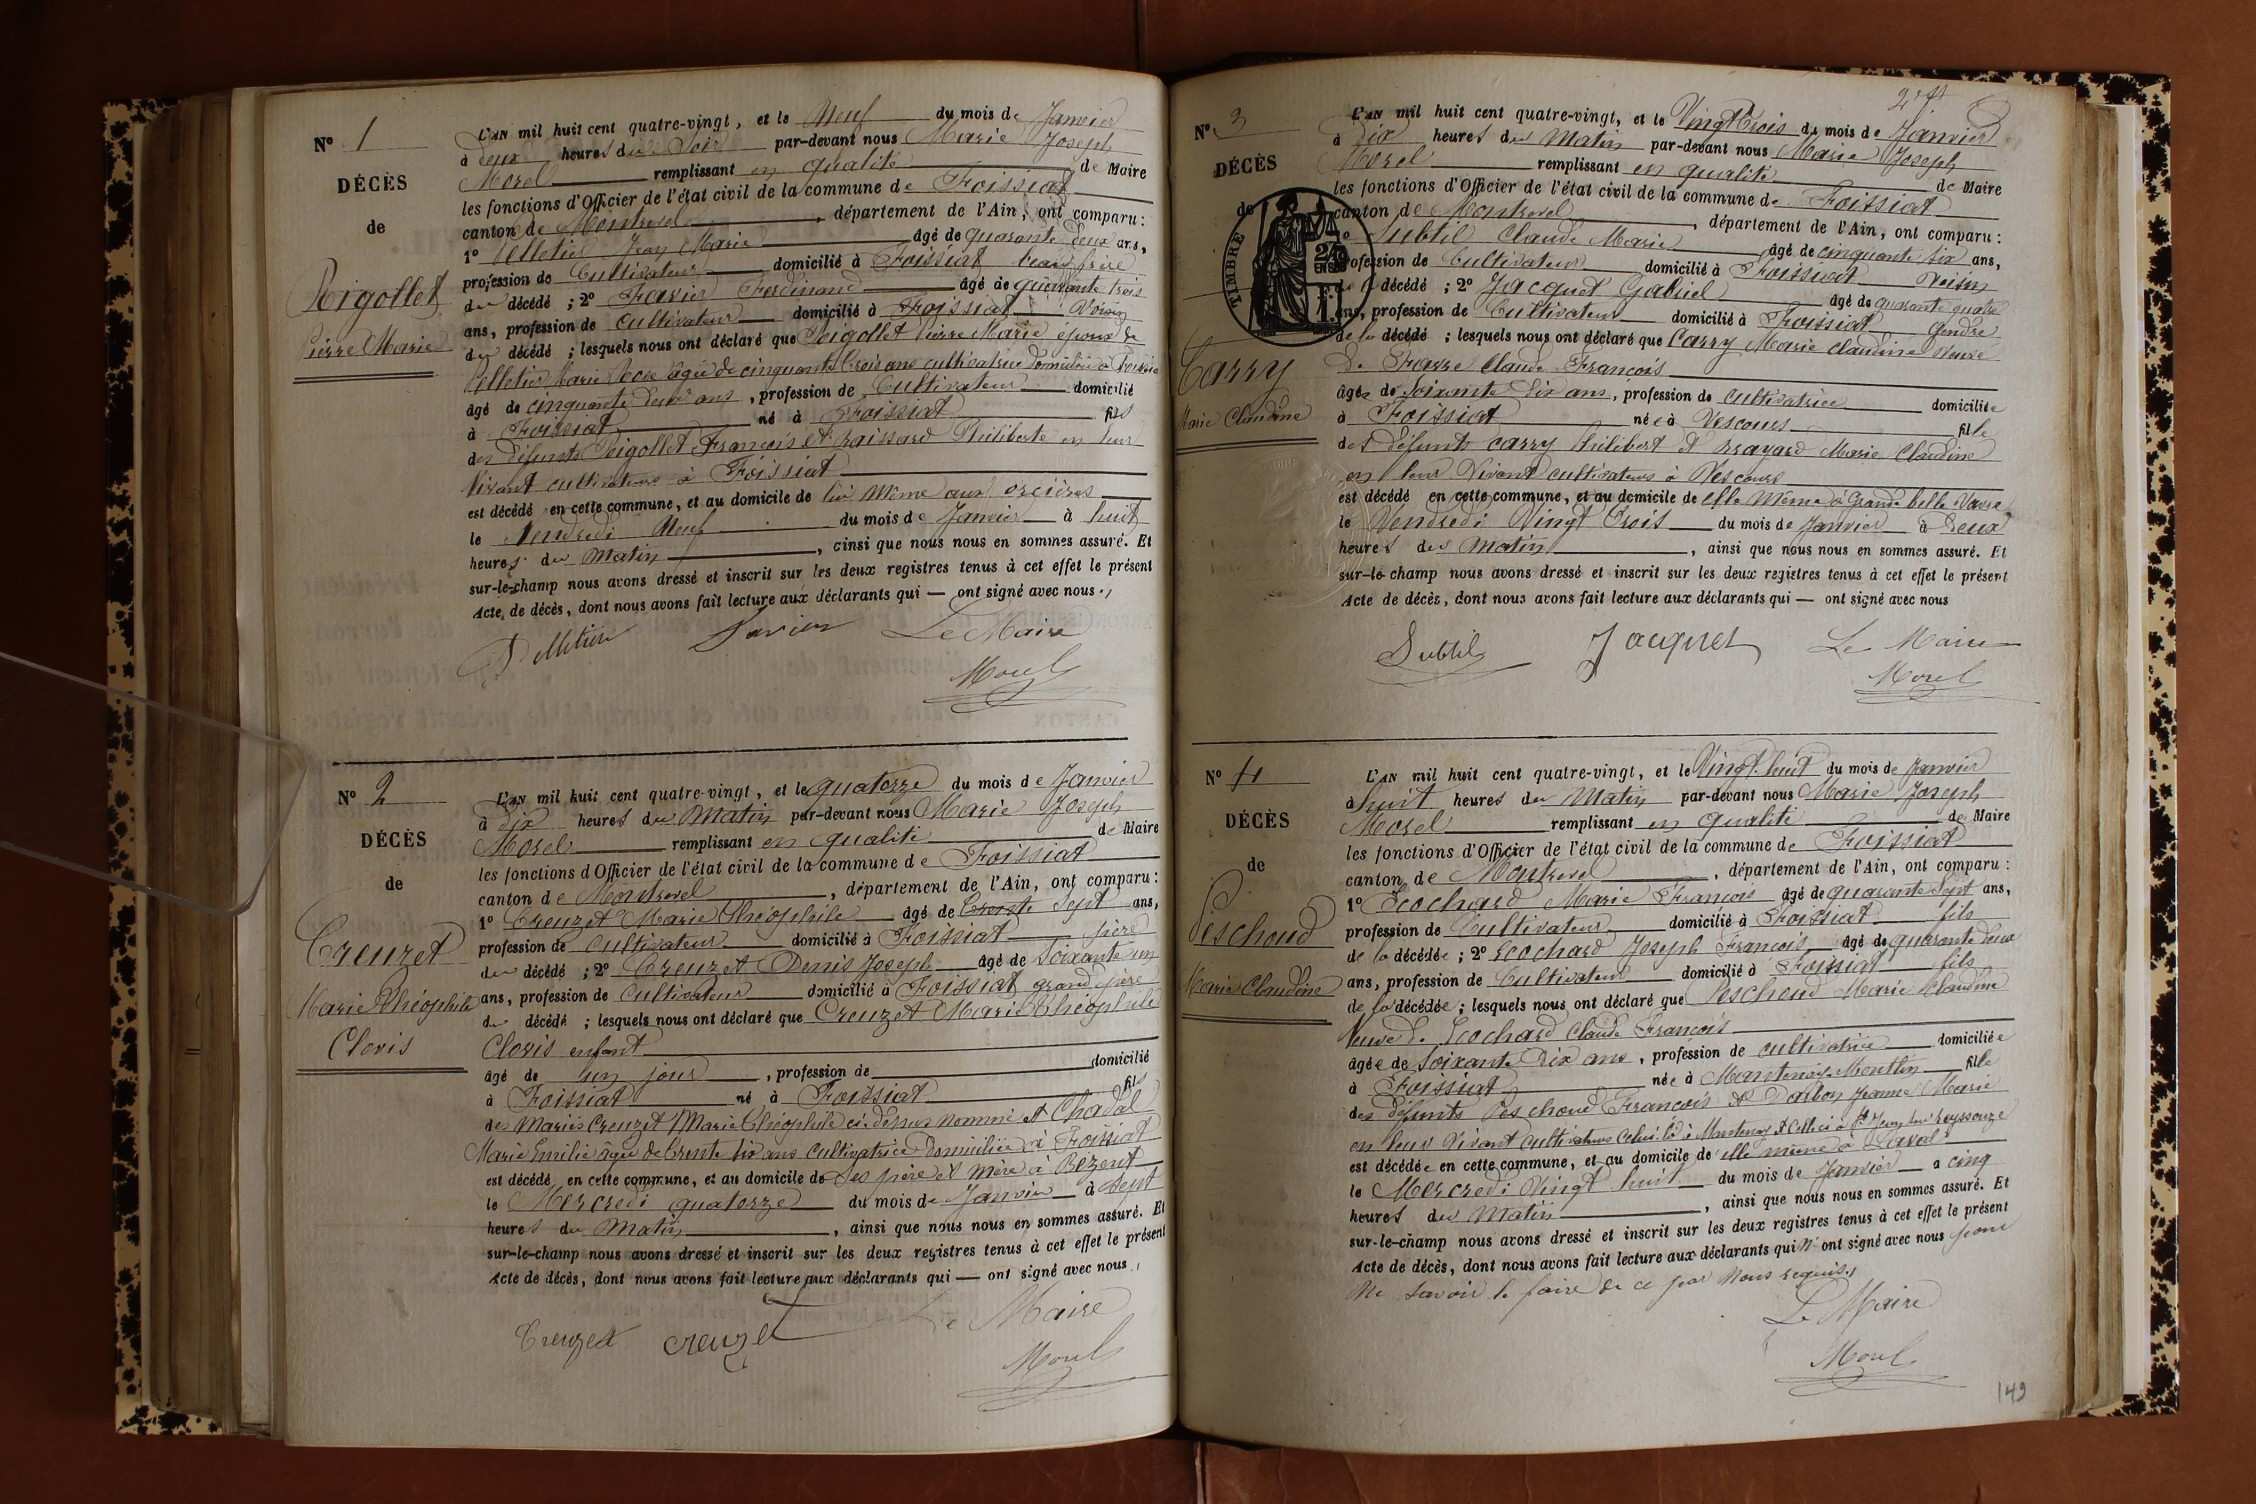 N° 1
DÉCÈS
de
Rigollet
Pierre Marie
L'AN mil huit cent quatre-vingt, et le Neuf du mois de Janvier
à deux heures du Soir par-devant nous Marie Joseph
Morel remplissant en qualité de Maire
les fonctions d'Officier de l'état civil de la commune de Foissiat
canton de Montrevel, département de l'Ain, ont comparu :
1° Pelletier Jean Marie âgé de quarante deux ans,
profession de Cultivateur domicilié à Foissiat beau frère
du décédé ; 2° Favier Ferdinand âgé de quarante trois
ans, profession de cultivateur domicilié à Foissiat Voisin
du décédé ; lesquels nous ont déclaré que Rigollet Pierre Marie époux de
Pelletier Marie âgée de cinquante trois ans cultivatrice domiciliée à Foissiat
âgé de cinquante deux ans, profession de Cultivateur domicilié
à Foissiat né à Foissiat fils
des défunts Rigollet François et Philiberte en leur
Vivant cultivateurs à Foissiat
est décédé en cette commune, et au domicile de lui même aux orcières
le Vendredi Neuf du mois de Janvier à huit
heures du Matin, ainsi que nous nous en sommes assuré. Et
sur-le-champ nous avons dressé et inscrit sur les deux registres tenus à cet effet le présent
Acte de décès, dont nous avons fait lecture aux déclarants qui — ont signé avec nous.
Pelletier Favier Le Maire
Morel
N° 2
DÉCÈS
de
Creuzet
Marie Théophile
Clovis
L'AN mil huit cent quatre-vingt, et le quatorze du mois de Janvier
à dix heures du Matin par-devant nous Marie Joseph
Morel remplissant en qualité de Maire
les fonctions d'Officier de l'état civil de la commune de Foissiat
canton de Montrevel, département de l'Ain, ont comparu :
1° Creuzet Marie Théophile âgé de trente sept ans,
profession de cultivateur domicilié à Foissiat père
du décédé ; 2° Creuzet Denis Joseph âgé de soixante un
ans, profession de cultivateur domicilié à Foissiat grand père
du décédé ; lesquels nous ont déclaré que Creuzet Marie Théophile
Clovis enfant
âgé de un jour, profession de domicilié
à Foissiat né à Foissiat fils
des Mariés Creuzet Marie Théophile ci-dessus nommé et Chaval
Marie Emilie âgée de trente six ans cultivatrice domiciliée à Foissiat
est décédé en cette commune, et au domicile de Ses père et mère à Bézent
le Mercredi quatorze du mois de Janvier à sept
heures du Matin, ainsi que nous nous en sommes assuré. Et
sur-le-champ nous avons dressé et inscrit sur les deux registres tenus à cet effet le présent
Acte de décès, dont nous avons fait lecture aux déclarants qui — ont signé avec nous.
Creuzet creuzet Le Maire
Morel
N° 3
DÉCÈS
de
TIMBRE
Carry
Marie Claudine
L'AN mil huit cent quatre-vingt, et le Vingt trois du mois de Janvier
à dix heures du Matin par-devant nous Marie Joseph
Morel remplissant en qualité de Maire
les fonctions d'Officier de l'état civil de la commune de Foissiat
canton de Montrevel, département de l'Ain, ont comparu :
1° Subtil Claude Marie âgé de cinquante six ans,
profession de Cultivateur domicilié à Foissiat Voisin
de la décédé ; 2° Jacquet Gabriel âgé de quarante quatre
ans, profession de Cultivateur domicilié à Foissiat Gendre
de la décédé ; lesquels nous ont déclaré que Carry Marie Claudine Veuve
de Claude François
âgée de Soixante dix ans, profession de cultivatrice domiciliée
à Foissiat née à Vescours fille
des défunts Carry Philibert et Brayard Marie Claudine
en leur Vivant cultivateurs à Vescours
est décédé en cette commune, et au domicile de elle Même à Grande belle Vavre
le Vendredi Vingt trois du mois de Janvier à deux
heures du Matin, ainsi que nous nous en sommes assuré. Et
sur-le-champ nous avons dressé et inscrit sur les deux registres tenus à cet effet le présent
Acte de décès, dont nous avons fait lecture aux déclarants qui — ont signé avec nous
Subtil Jacquet Le Maire
Morel
N° 4
DÉCÈS
de
Peschoud
Marie Claudine
L'AN mil huit cent quatre-vingt, et le Vingt huit du mois de Janvier
à huit heures du Matin par-devant nous Marie Joseph
Morel remplissant en qualité de Maire
les fonctions d'Officier de l'état civil de la commune de Foissiat
canton de Montrevel, département de l'Ain, ont comparu :
1° Ecochard Marie François âgé de quarante Sept ans,
profession de Cultivateur domicilié à Foissiat fils
de la décédée ; 2° Ecochard Joseph François âgé de quarante deux
ans, profession de Cultivateur domicilié à Foissiat fils
de la décédée ; lesquels nous ont déclaré que Peschoud Marie Claudine
Veuve de Ecochard Claude François
âgée de Soixante Dix ans, profession de cultivatrice domiciliée
à Foissiat née à Mantenay Montlin fille
des défunts Peschoud François et Darbon Jeanne Marie
en leur Vivant cultivateurs Celui là à Mantenay et Celle ci à St Jean sur Reyssouze
est décédée en cette commune, et au domicile de elle même à
le Mercredi Vingt huit du mois de Janvier à cinq
heures du Matin, ainsi que nous nous en sommes assuré. Et
sur-le-champ nous avons dressé et inscrit sur les deux registres tenus à cet effet le présent
Acte de décès, dont nous avons fait lecture aux déclarants qui n' ont signé avec nous pour
ne savoir le faire de ce par Nous requis.
Le Maire
Morel
149